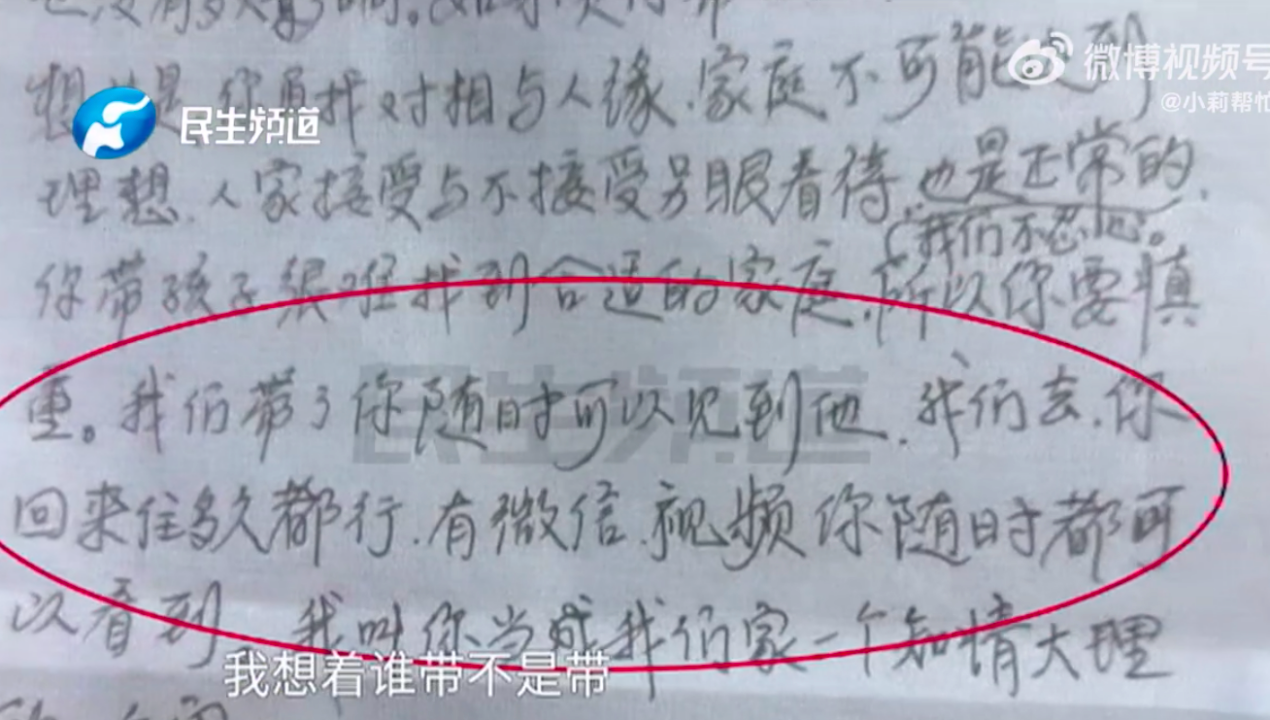 微博视频号
@小莉帮忙
民生频道
对相与人缘.家庭不可能达到
理想.人家接受与不接受另眼看待.也是正常的.
(我们不忍心。
你带孩子很难找到合适的家庭.所以你要慎
重。我们带了你随时可以见到他.我们去.你
回来住多久都行.有微信.视频你随时都可
以看到 我叫你当成我们家一个知情大理
民生频道
我想着谁带不是带